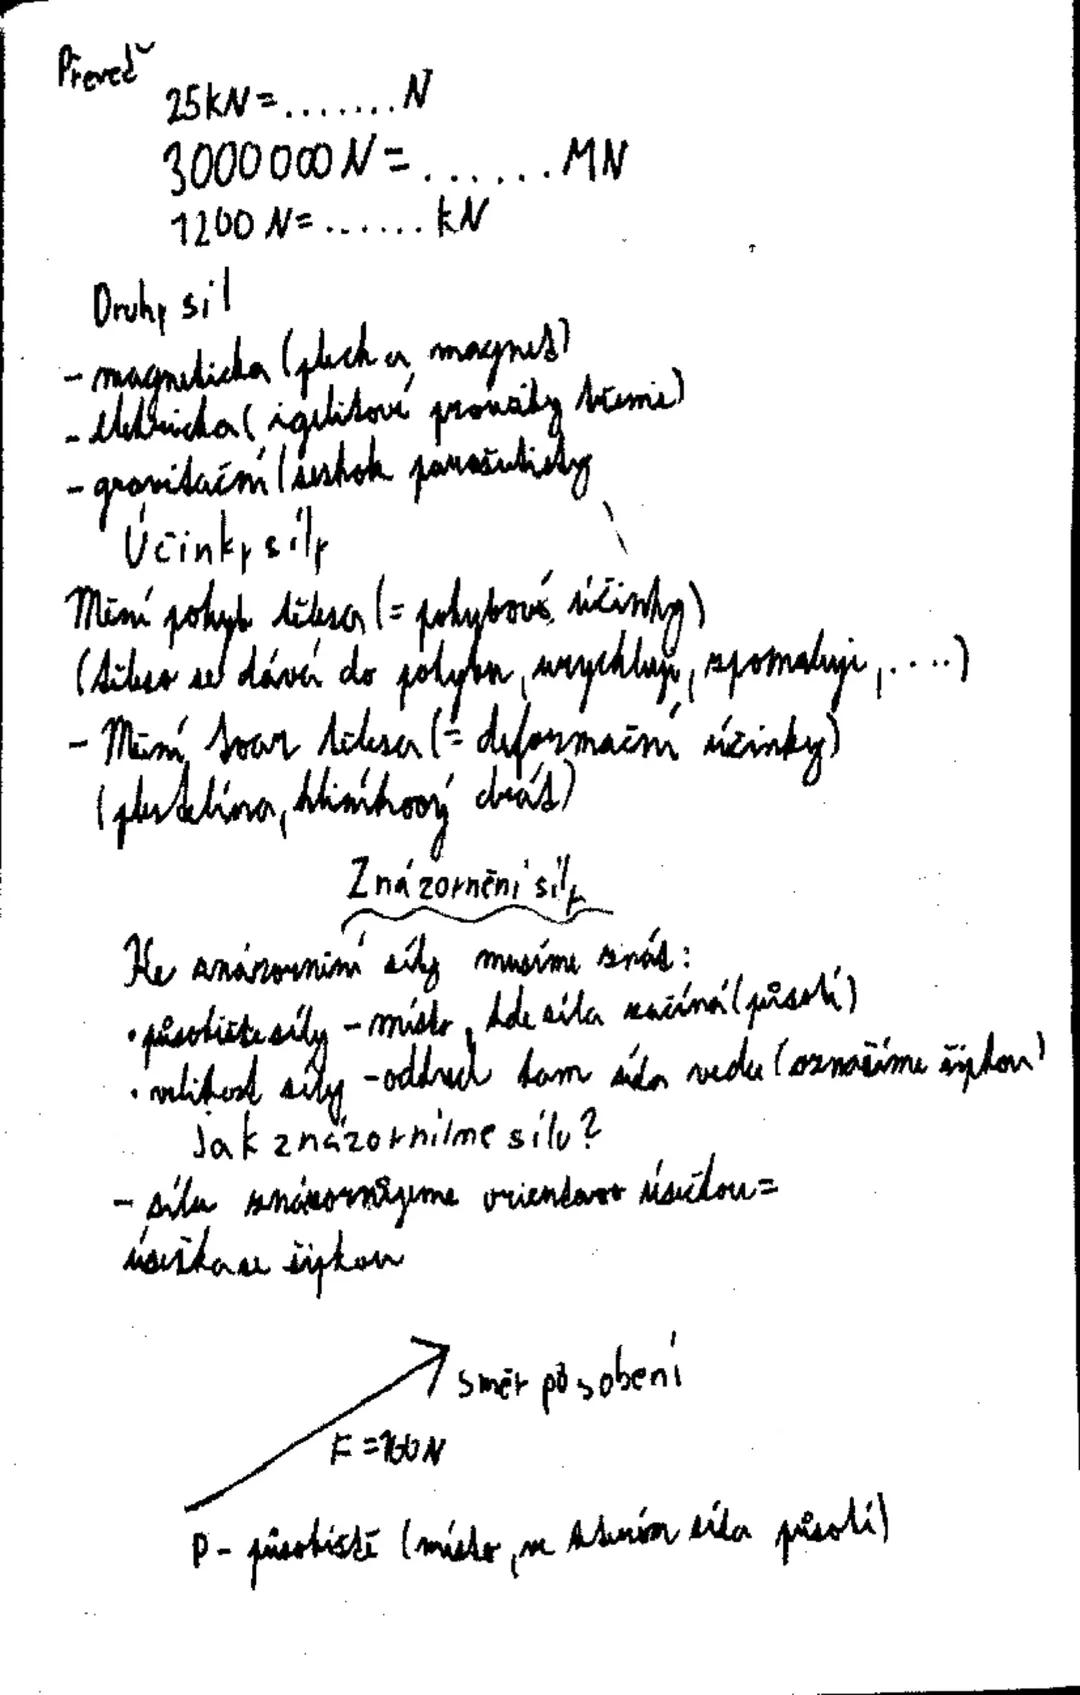 Převeď
25kN=.......N
3000000N=......MN
1200N=......kN
Druhy sil
- magnetická (plech a magnet)
- elektrická (igelitové proužky tření)
- gravitační (seskok parašutisty
Účinky síly
Mění pohyb tělesa (= pohybové účinky)
(těleso se dává do pohybu, urychluje, zpomaluje,....)
- Mění tvar tělesa (= deformační účinky)
(plastelína, hliníkový drát)
Znázornění síly
Ke znázornění síly musíme znát:
• působiště síly - místo, kde síla začíná (působí)
• velikost síly - odkud kam síla vede (označíme šipkou)
Jak znázorníme sílu?
- sílu znázorňujeme orientovanou úsečkou=
úsečka se šipkou
směr působení
F=160N
P - působiště (místo, ve kterém síla působí)